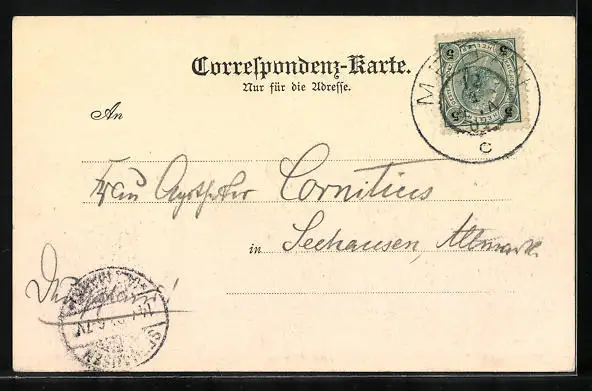 Correspondenz-Karte.
Nur für die Adresse.
An
Frau Apotheker Cornitius
in Seehausen, Altmark
5 5
5 5
C